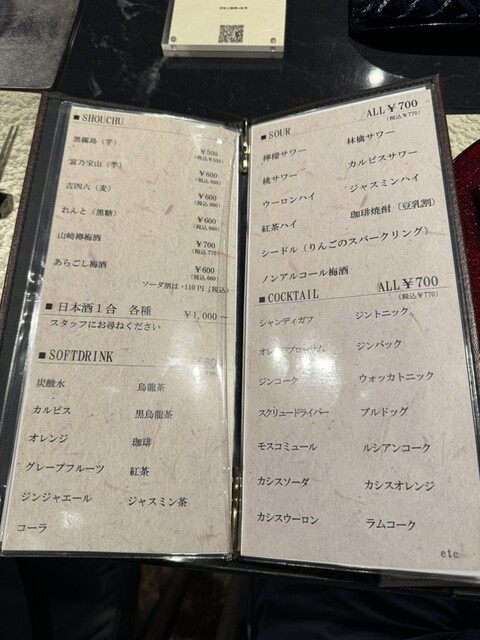 ■ SHOUCHU
黒霧島（芋） ￥500
(税込￥550)
富乃宝山（芋） ￥600
(税込 660)
吉四六（麦） ￥600
(税込 660)
れんと（黒糖） ￥600
(税込 660)
山崎樽梅酒 ￥700
(税込 770)
あらごし梅酒 ￥600
(税込 660)
ソーダ割は+110円（税込）
■ 日本酒１合 各種 ￥1,000～
スタッフにお尋ねください
■ SOFTDRINK
炭酸水 烏龍茶
カルピス 黒烏龍茶
オレンジ 珈琲
グレープフルーツ 紅茶
ジンジャエール ジャスミン茶
コーラ
■ SOUR ALL￥700
(税込￥770)
檸檬サワー 林檎サワー
桃サワー カルピスサワー
ウーロンハイ ジャスミンハイ
紅茶ハイ 珈琲焼酎（豆乳割）
シードル（りんごのスパークリング）
ノンアルコール梅酒
■ COCKTAIL ALL￥700
(税込￥770)
シャンディガフ ジントニック
オレンジブロッサム ジンバック
ジンコーク ウォッカトニック
スクリュードライバー ブルドッグ
モスコミュール ルシアンコーク
カシスソーダ カシスオレンジ
カシスウーロン ラムコーク
etc